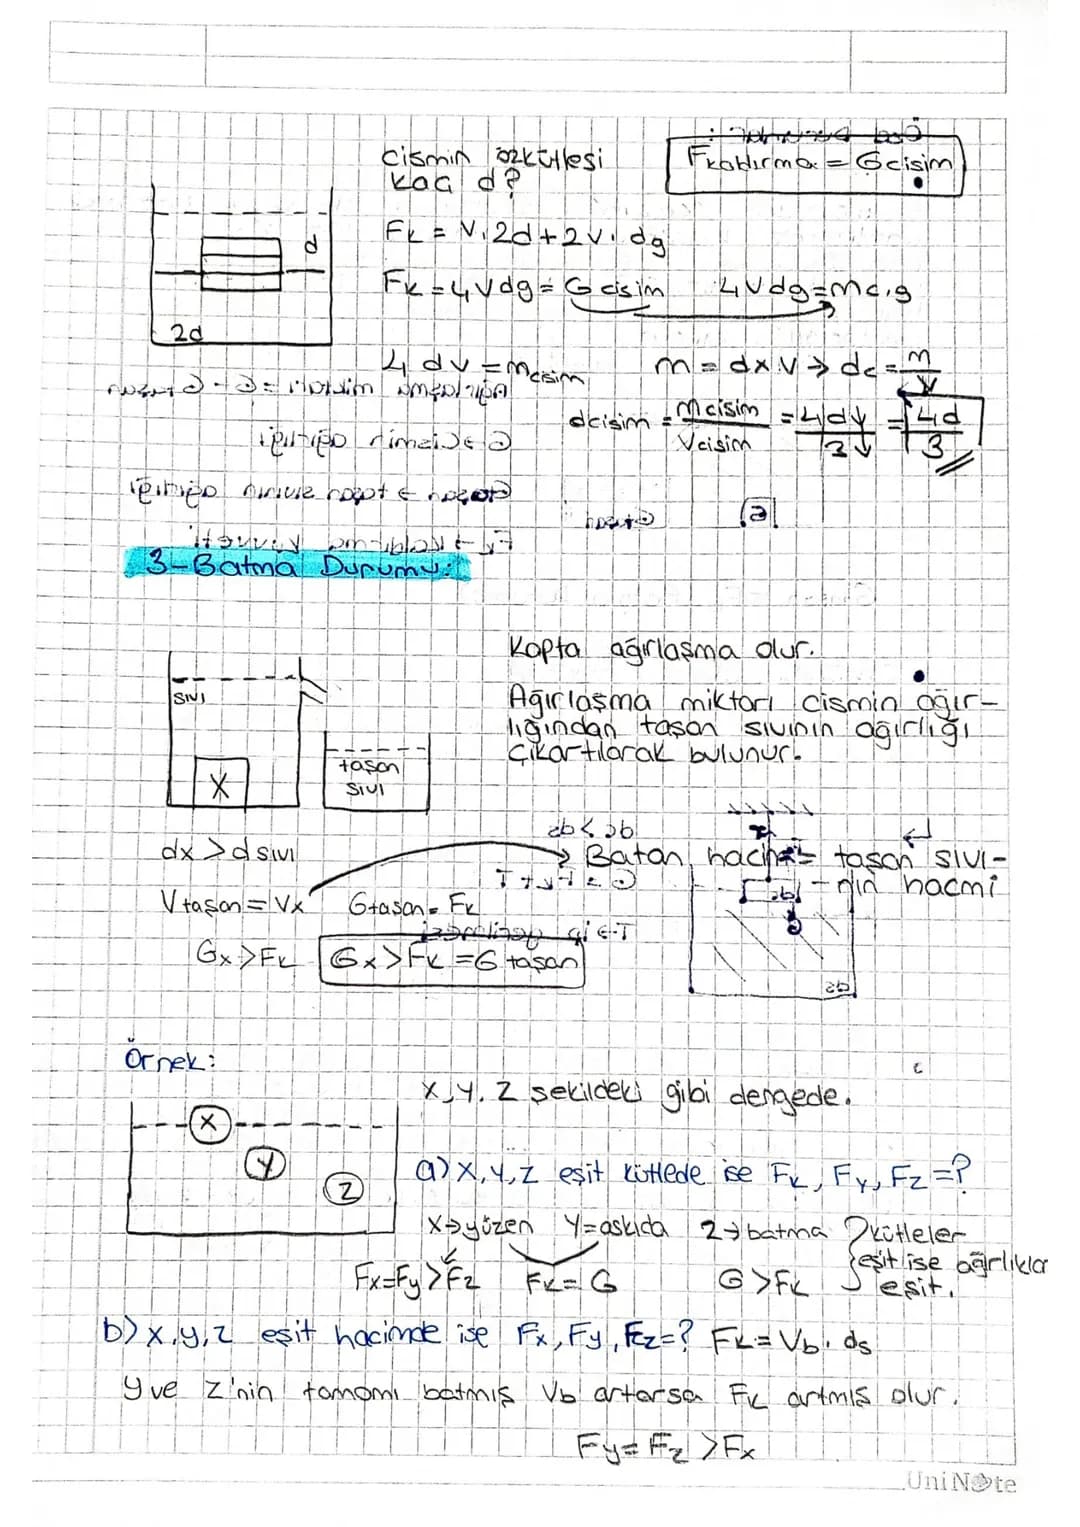 cismin özkütlesi
kaç d?
Fkaldırma = Gcisim
d
2d
Fk = V.2d+2V.dg
Fk=4Vdg=Gcisim
4Vdg=mc.g
4dv=mcisim
m = dxV → dc = m/V
dcisim = mcisim/Vcisim = 4dV/3V = 4d/3
3-Batma Durumu:
Kapta ağırlaşma olur.
Ağırlaşma miktarı cismin ağır-
lığından taşan sıvının ağırlığı
çıkartılarak bulunur.
sıvı
X
taşan
sıvı
dx > dsıvı
→ Batan hacim = taşan sıvı-
nın hacmi
Vtaşan = Vx
Gtaşan = Fk
Gx > Fk
Gx > Fk = G taşan
Örnek:
X,Y,Z şekildeki gibi dengede.
X
Y
Z
a) X,Y,Z eşit kütlede ise Fx, Fy, Fz =?
X→yüzen Y=askıda Z→batma
kütleler
eşit ise ağırlıklar
eşit.
Fx=Fy>Fz
Fk = G
G>Fk
b) x,y,z eşit hacimde ise Fx, Fy, Fz=? Fk = Vb.ds
y ve z'nin tamamı batmış Vb artarsa Fk artmış olur.
Fy = Fz > Fx
UniNote